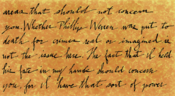 mean that should not concern
you. Whether Phillip Weiver was put to
death for crimes real or imagined is
not the issue here. The fact that it held
his fate in my hands should concern
you for I have that sort of power